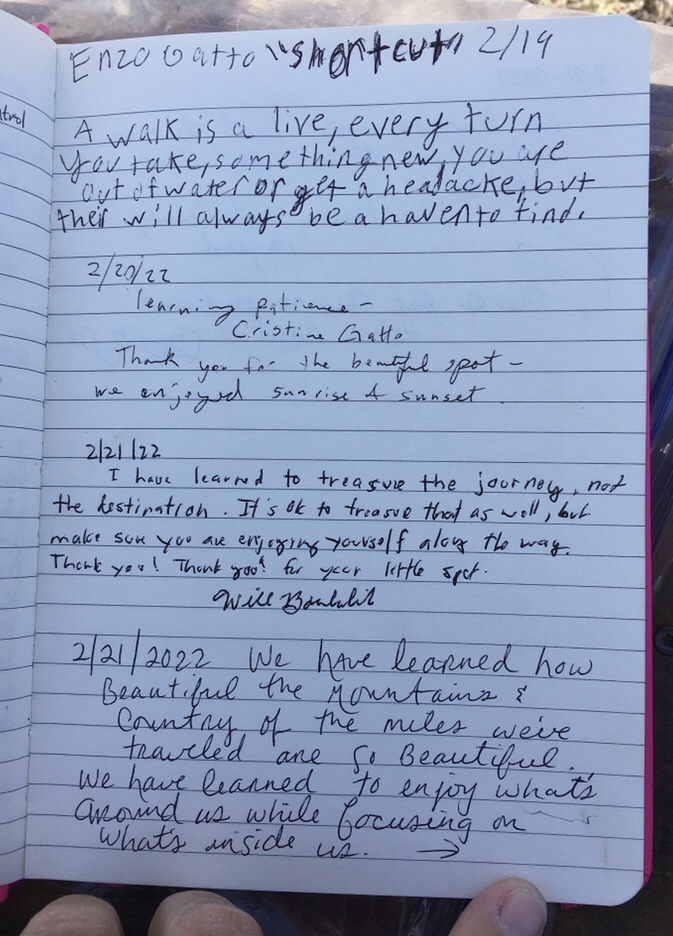 ntrol
Enzo Gatto "shortcut" 2/19
A walk is a live, every turn
you take, something new, you are
out of water or get a headacke, but
their will always be a haven to find.
2/20/22
learning patience -
Cristine Gatto
Thank you for the beautiful spot -
we enjoyed sunrise & sunset.
2/21/22
I have learned to treasure the journey, not
the destination. It's ok to treasure that as well, but
make sure you are enjoying yourself along the way.
Thank you! Thank you! for your little spot.
Will
2/21/2022 We have learned how
Beautiful the Mountains &
Country of the miles we've
traveled are so Beautiful.
We have learned to enjoy what's
around us while focusing on
what's inside us. →